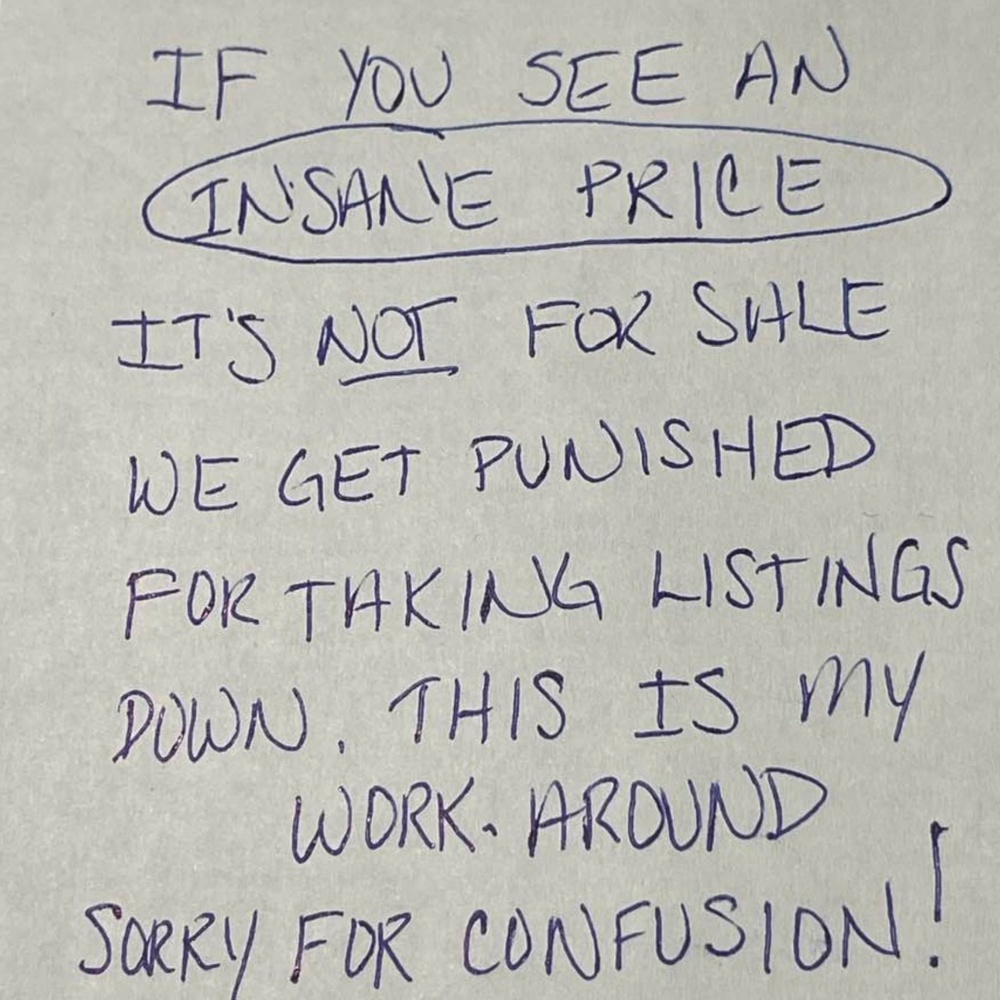 IF YOU SEE AN
INSANE PRICE
IT'S NOT FOR SALE
WE GET PUNISHED
FOR TAKING LISTINGS
DOWN. THIS IS MY
WORK-AROUND
SORRY FOR CONFUSION!